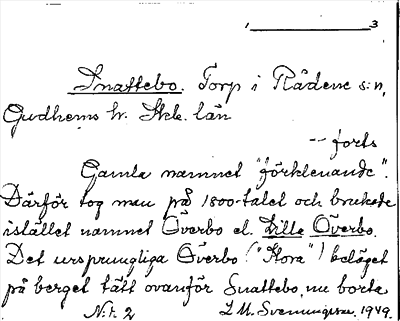 1 3
Snattebo. Torp i Rådene s:n,
Gudhems hr. Skb. län
-- forts
Gamla namnet "förklenande".
Därför tog man på 1800-talet och brukade
istället namnet Överbo el. Lille Överbo.
Det ursprungliga Överbo ("Stora") beläget
på berget tätt ovanför Snattebo, nu borta
N:r. 2 L M. Svenungsson. 1949.